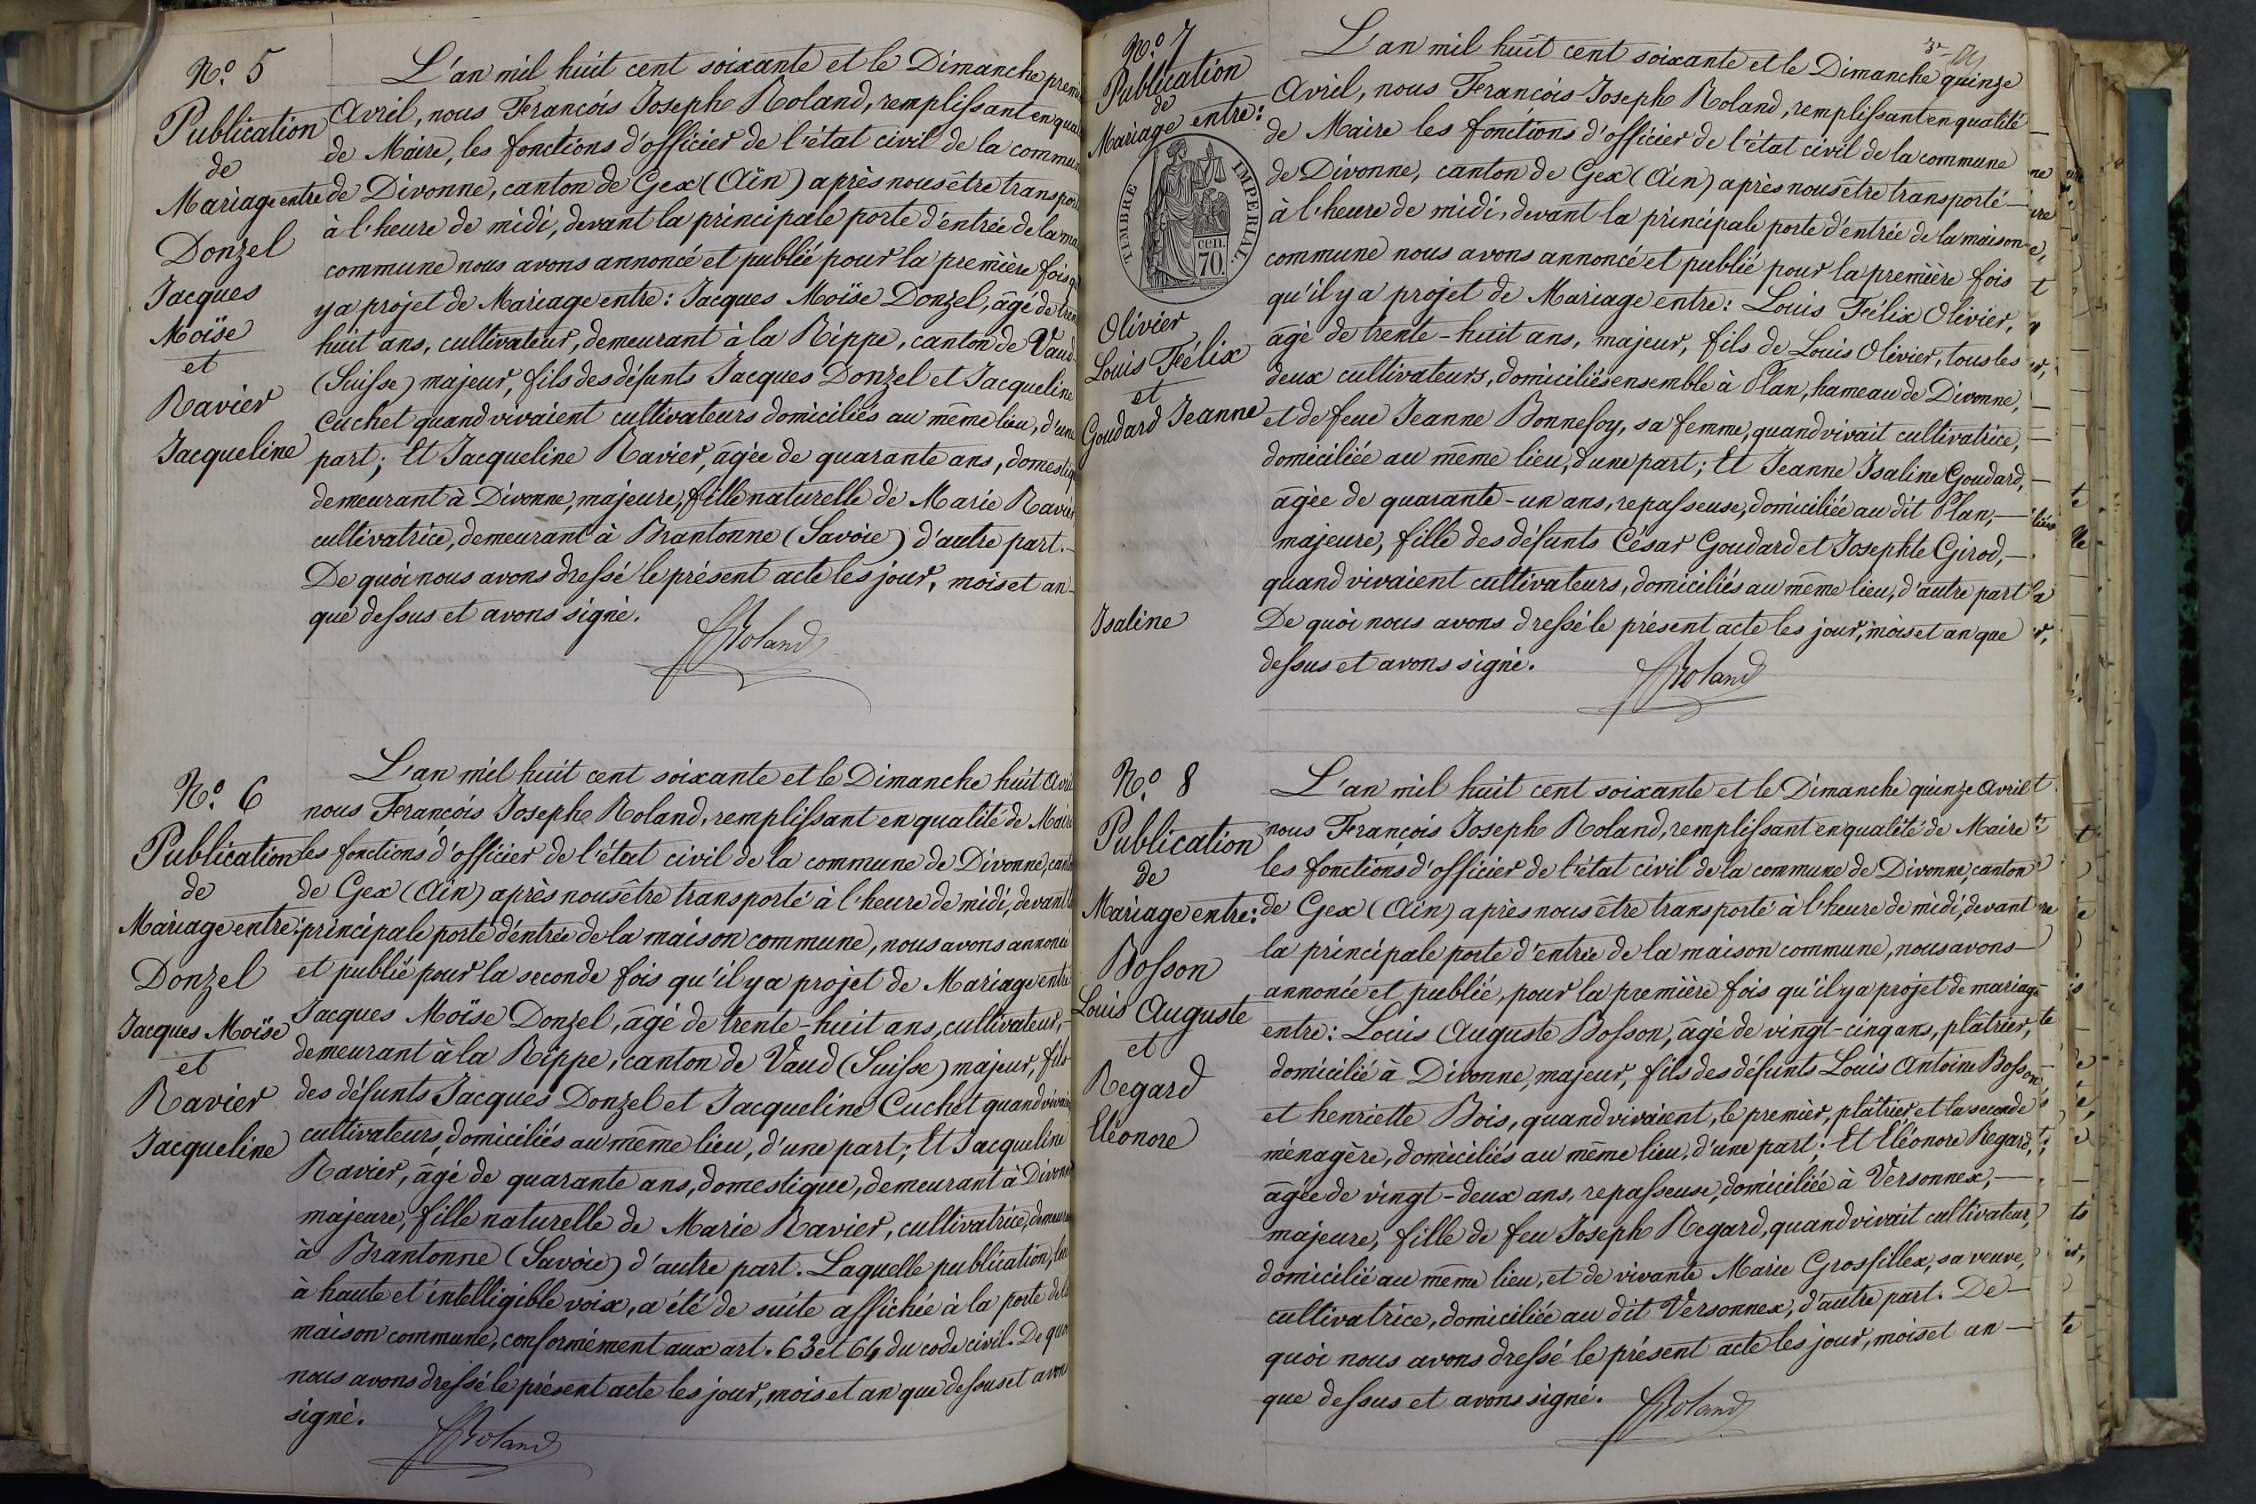 N.o 5
Publication
de
Mariage entre
Donzel
Jacques
Moïse
et
Ravier
Jacqueline
L'an mil huit cent soixante et le Dimanche premie
Avril, nous Francois Joseph Roland, remplissant en qual
de Maire, les fonctions d'officier de l'état civil de la commun
de Divonne, canton de Gex (Ain) après nous être transpor
à l'heure de midi, devant la principale porte d'entrée de la mai
commune nous avons annoncé et publié pour la première fois qu
y a projet de Mariage entre: Jacques Moïse Donzel, âgé de tren
huit ans, cultivateur, demeurant à la Rippe, canton de Vaud
(Suisse) majeur, fils des défunts Jacques Donzel et Jacqueline
Cuchet quand vivaient cultivateurs domiciliés au même lieu, d'une
part; Et Jacqueline Ravier, âgée de quarante ans, domestiq
demeurant à Divonne, majeure, fille naturelle de Marie Ravier
cultivatrice, demeurant à Brantonne (Savoie) d'autre part.
De quoi nous avons dressé le présent acte les jour, mois et an
que dessus et avons signé.
Roland
N.o 6
Publication
de
Mariage entre:
Donzel
Jacques Moïse
et
Ravier
Jacqueline
L'an mil huit cent soixante et le Dimanche huit Avril
nous Francois Joseph Roland, remplissant en qualité de Maire
les fonctions d'officier de l'état civil de la commune de Divonne, cant
de Gex (Ain) après nous être transporté à l'heure de midi, devant l
principale porte d'entrée de la maison commune, nous avons annoncé
et publié pour la seconde fois qu'il y a projet de Mariage entre
Jacques Moïse Donzel, âgé de trente-huit ans, cultivateur,
demeurant à la Rippe, canton de Vaud (Suisse) majeur, fils
des défunts Jacques Donzel et Jacqueline Cuchet quand vivaien
cultivateurs, domiciliés au même lieu, d'une part; Et Jacqueline
Ravier, âgé de quarante ans, domestique, demeurant à Divonne
majeure, fille naturelle de Marie Ravier, cultivatrice, demeura
à Brantonne (Savoie) d'autre part. Laquelle publication, lue
à haute et intelligible voix, a été de suite affichée à la porte de la
maison commune, conformément aux art. 63 et 64 du code civil. De quoi
nous avons dressé le présent acte les jour, mois et an que dessus et avons
signé.
Roland
N.o 7
Publication
de
Mariage entre:
TIMBRE IMPERIAL
70 cen.
Olivier
Louis Félix
et
Goudard Jeanne
Isaline
L'an mil huit cent soixante et le Dimanche quinze
Avril, nous Francois-Joseph Roland, remplissant en qualité
de Maire les fonctions d'officier de l'état civil de la commune
de Divonne, canton de Gex (Ain) après nous être transporté
à l'heure de midi, devant la principale porte d'entrée de la maison
commune nous avons annoncé et publié pour la première fois
qu'il y a projet de Mariage entre: Louis Félix Olivier,
âgé de trente-huit ans, majeur, fils de Louis Olivier, tous les
deux cultivateurs, domiciliés ensemble à Plan, hameau de Divonne,
et de feue Jeanne Bonnefoy, sa femme, quand vivait cultivatrice,
domiciliée au même lieu, d'une part; Et Jeanne Isaline Goudard,
âgée de quarante-un ans, repasseuse, domiciliée au dit Plan,
majeure, fille des défunts César Goudard et Josephte Girod,
quand vivaient cultivateurs, domiciliés au même lieu, d'autre part
De quoi nous avons dressé le présent acte les jour, mois et an que
dessus et avons signé.
Roland
N.o 8
Publication
de
Mariage entre:
Bosson
Louis Auguste
et
Regard
Eléonore
L'an mil huit cent soixante et le Dimanche quinze Avril
nous François Joseph Roland, remplissant en qualité de Maire
les fonctions d'officier de l'état civil de la commune de Divonne, canton
de Gex (Ain) après nous être transporté à l'heure de midi, devant
la principale porte d'entrée de la maison commune, nous avons
annoncé et publié, pour la première fois qu'il y a projet de mariage
entre: Louis Auguste Bosson, âgé de vingt-cinq ans, plâtrier,
domicilié à Divonne, majeur, fils des défunts Louis Antoine Bosson
et henriette Bois, quand vivaient, le premier, plâtrier et la seconde
ménagère, domiciliés au même lieu, d'une part; Et Eléonore Regard,
âgée de vingt-deux ans, repasseuse, domiciliée à Versonnex,
majeure, fille de feu Joseph Regard, quand vivait cultivateur,
domicilié au même lieu, et de vivante Marie Grosfillex, sa veuve,
cultivatrice, domiciliée au dit Versonnex, d'autre part. De
quoi nous avons dressé le présent acte les jour, mois et an
que dessus et avons signé.
Roland